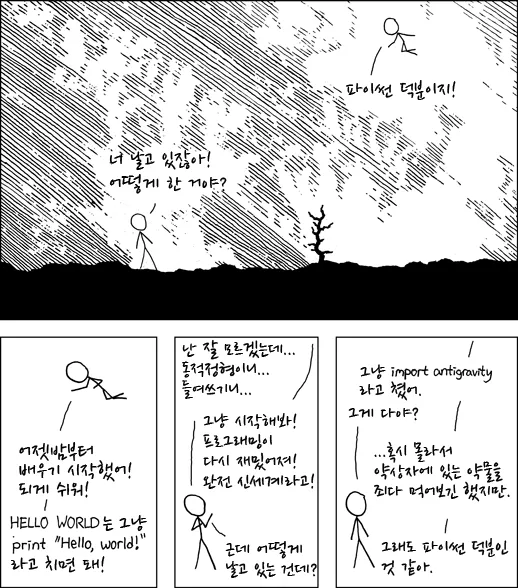 너 날고 있잖아!
어떻게 한 거야?
파이썬 덕분이지!
어젯밤부터
배우기 시작했어!
되게 쉬워!
HELLO WORLD는 그냥
print "Hello, world!"
라고 치면 돼!
난 잘 모르겠는데...
동적정형이니...
들여쓰기니...
그냥 시작해봐!
프로그래밍이
다시 재밌어져!
완전 신세계라고!
근데 어떻게
날고 있는 건데?
그냥 import antigravity
라고 쳤어.
그게 다야?
...혹시 몰라서
약상자에 있는 약물을
죄다 먹어보긴 했지만.
그래도 파이썬 덕분인
것 같아.